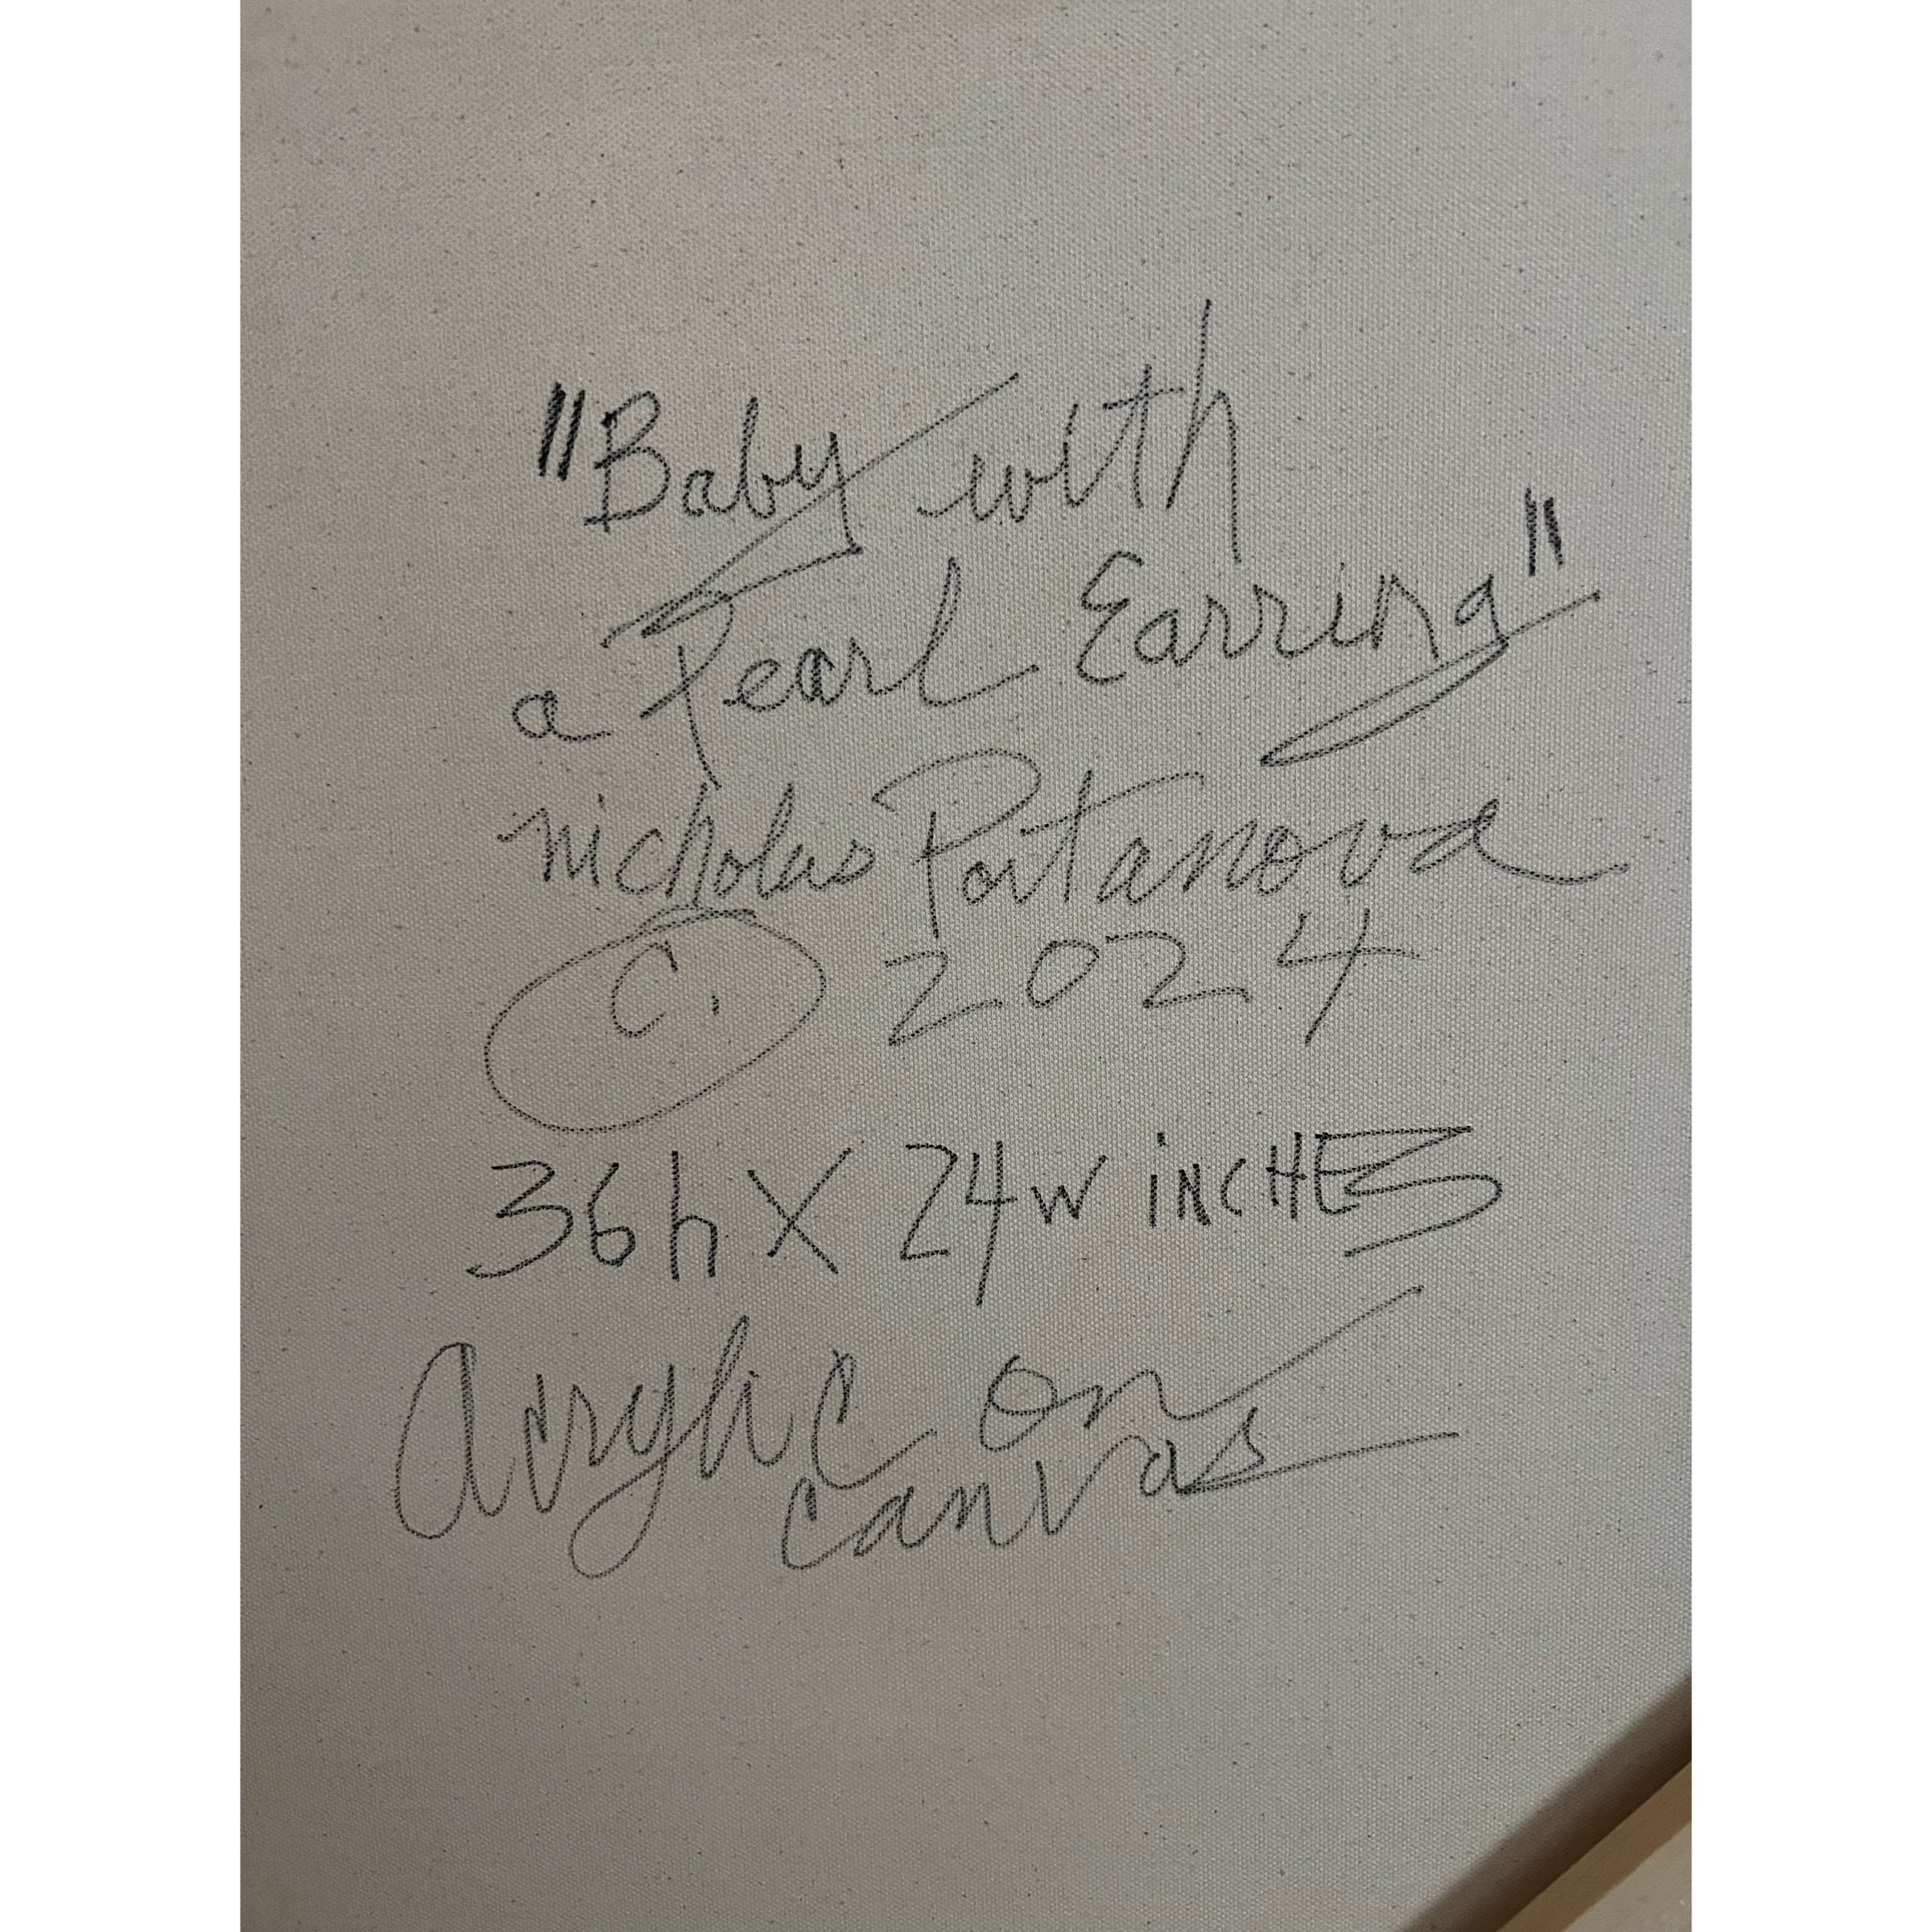 "Baby with
a Pearl Earring"
Nicholas Portanova
C. 2024
36h X 24w INCHES
Acrylic on
canvas